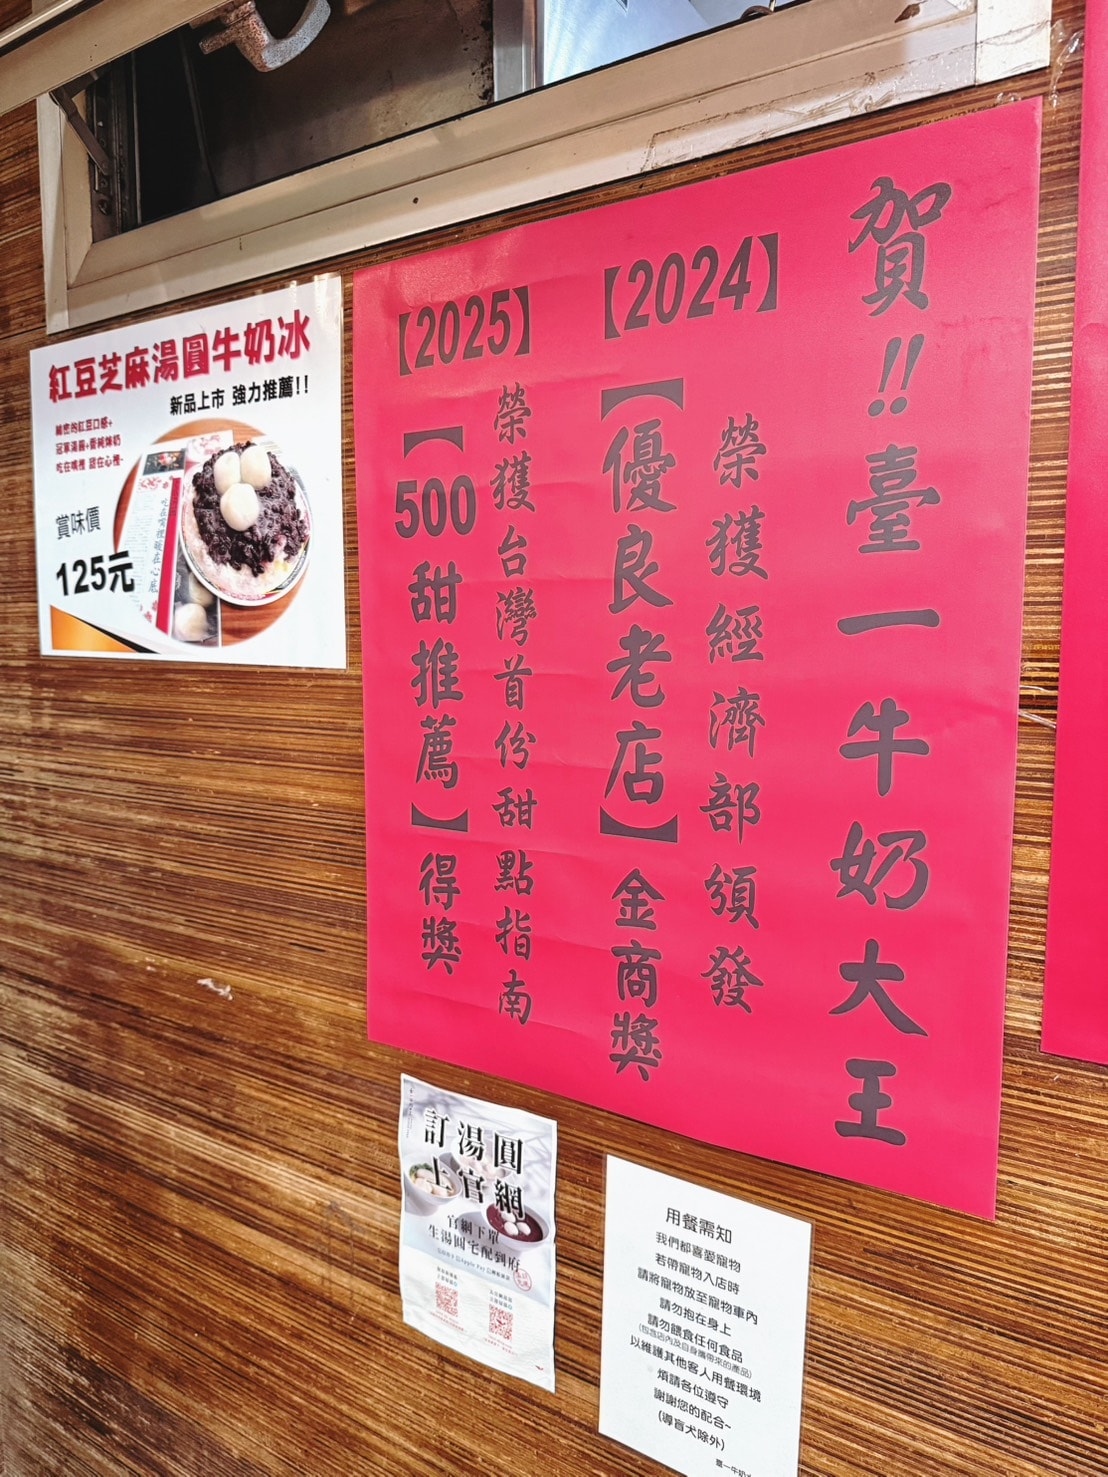 紅豆芝麻湯圓牛奶冰
新品上市 強力推薦!!
綿密的紅豆口感+
冠軍湯圓+香純鮮奶
吃在嘴裡 甜在心裡~
賞味價
125元
吃在嘴裡暖在心底
賀!!臺一牛奶大王
【2024】
榮獲經濟部頒發
【優良老店】金商獎
【2025】
榮獲台灣首份甜點指南
【500甜推薦】得獎
訂湯圓
上官網
官網下單
生湯圓宅配到府
用餐需知
我們都喜愛寵物
若帶寵物入店時
請將寵物放至寵物車內
請勿抱在身上
請勿餵食任何食品
(包含店內及自身攜帶來的產品)
以維護其他客人用餐環境
煩請各位遵守
謝謝您的配合~
(導盲犬除外)
臺一牛奶